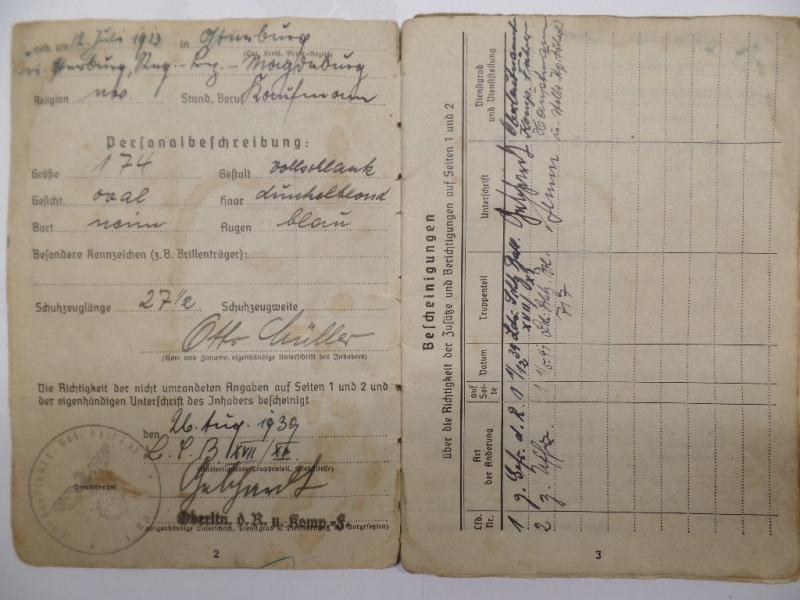 geb. am 12. Juli 1913 in Osterburg
(Ort, Kreis, Verw.-Bezirk)
Krs. Osterburg, Reg.-Bez.- Magdeburg
Religion nov. Stand, Beruf Kaufmann
Personalbeschreibung:
Größe 174 Gestalt vollschlank
Gesicht oval Haar dunkelblond
Bart nein Augen blau
Besondere Kennzeichen (z. B. Brillenträger):
Schuhzeuglänge 27 1/2 Schuhzeugweite
Otto Müller
(Vor- und Zuname, eigenhändige Unterschrift des Inhabers)
Die Richtigkeit der nicht umrandeten Angaben auf Seiten 1 und 2 und
der eigenhändigen Unterschrift des Inhabers bescheinigt
den 26. Aug. 1939
L. S. B XVII/XI
Dienststempel
Gebhardt
Oberltn. d. R. u. Komp.-F.
(Eigenhändige Unterschrift, Dienstgrad u. Dienststellung des Vorgesetzten)
2
Bescheinigungen
über die Richtigkeit der Zusätze und Berichtigungen auf Seiten 1 und 2
Lfd. Nr. Art der Änderung auf Seite Datum Truppenteil Unterschrift Dienstgrad und Dienststellung
1 g. Gefr. d. R. 1 1/12 39 XVII/XI Gebhardt Oberleutnant Komp. Führer
2 z. Uffz. 1 1/5 41 717 Hauptmann
3